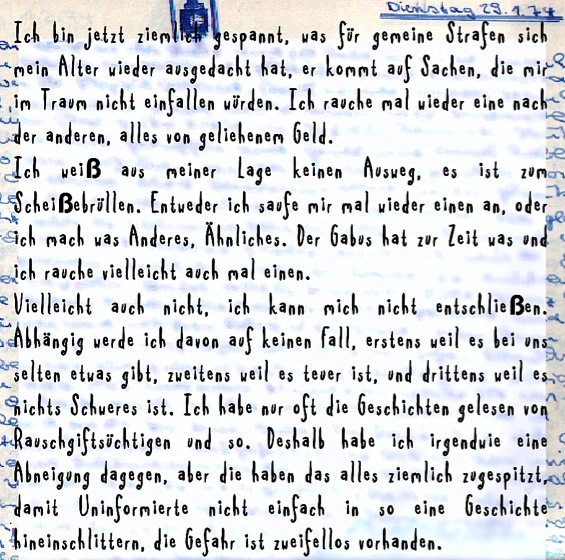 Dienstag 29.1.74
Ich bin jetzt ziemlich gespannt, was für gemeine Strafen sich
mein Alter wieder ausgedacht hat, er kommt auf Sachen, die mir
im Traum nicht einfallen würden. Ich rauche mal wieder eine nach
der anderen, alles von geliehenem Geld.
Ich weiß aus meiner Lage keinen Ausweg, es ist zum
Scheißebrüllen. Entweder ich saufe mir mal wieder einen an, oder
ich mach was Anderes, Ähnliches. Der Gabus hat zur Zeit was und
ich rauche vielleicht auch mal einen.
Vielleicht auch nicht, ich kann mich nicht entschließen.
Abhängig werde ich davon auf keinen Fall, erstens weil es bei uns
selten etwas gibt, zweitens weil es teuer ist, und drittens weil es
nichts Schweres ist. Ich habe nur oft die Geschichten gelesen von
Rauschgiftsüchtigen und so. Deshalb habe ich irgendwie eine
Abneigung dagegen, aber die haben das alles ziemlich zugespitzt,
damit Uninformierte nicht einfach in so eine Geschichte
hineinschlittern, die Gefahr ist zweifellos vorhanden.